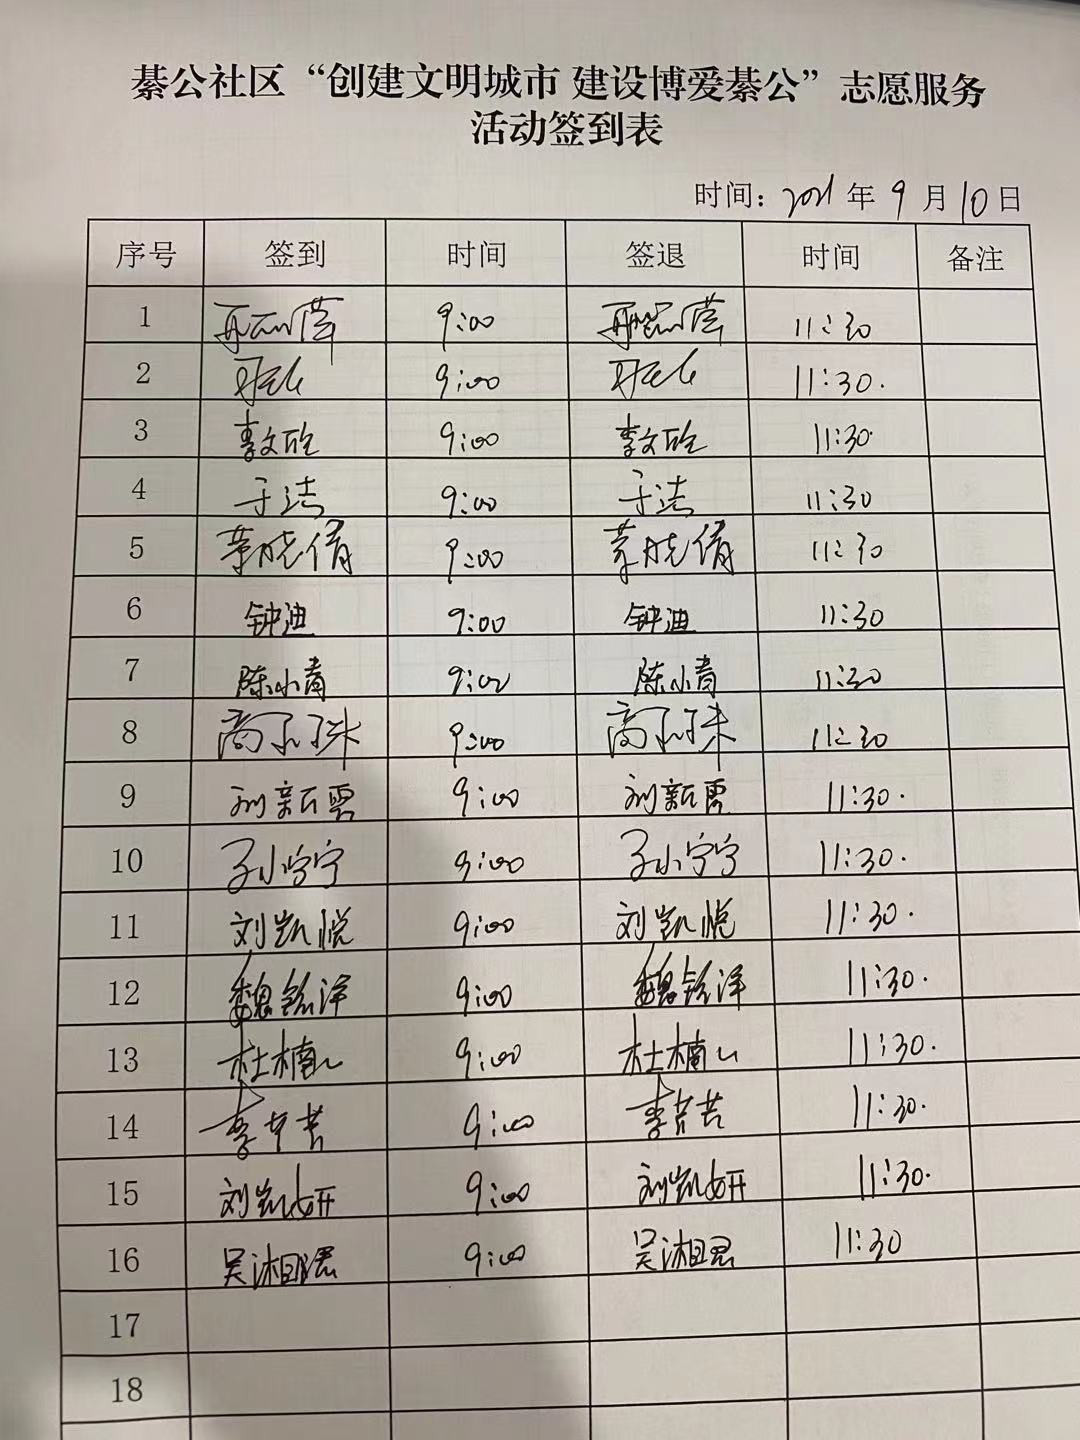 綦公社区“创建文明城市 建设博爱綦公”志愿服务
活动签到表
时间：2021年9月10日
序号 签到 时间 签退 时间 备注
1 9:00 11:30
2 9:00 11:30.
3 李文欣 9:00 李文欣 11:30.
4 于洁 9:00 于洁 11:30
5 董晓倩 9:00 董晓倩 11:30
6 钟迪 9:00 钟迪 11:30
7 陈小青 9:00 陈小青 11:30
8 9:00 11:30
9 刘新雲 9:00 刘新雲 11:30.
10 孙宁宁 9:00 孙宁宁 11:30.
11 刘凯悦 9:00 刘凯悦 11:30.
12 魏铭洋 9:00 魏铭洋 11:30.
13 杜楠 9:00 杜楠 11:30.
14 李芹芳 9:00 李芹芳 11:30.
15 刘凯妍 9:00 刘凯妍 11:30.
16 吴湘君 9:00 吴湘君 11:30
17
18